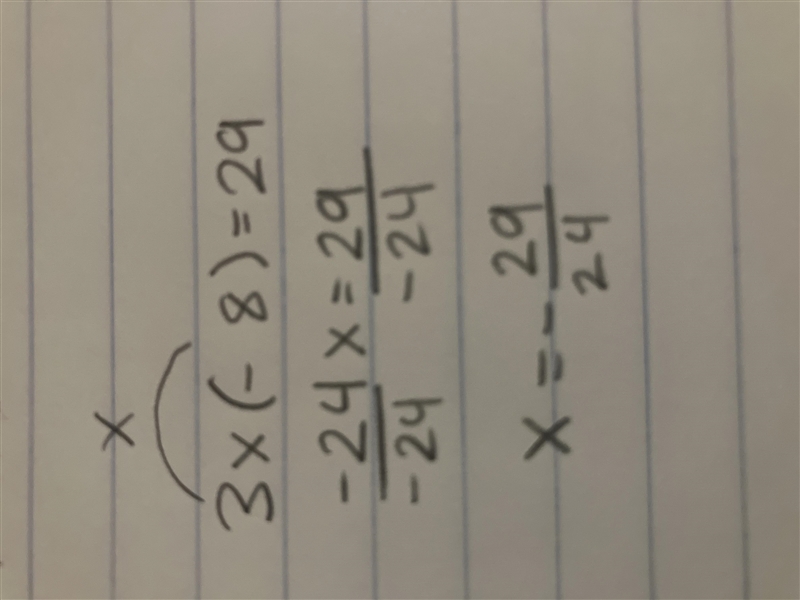 x
3x(-8)=29
-24x=29
-24 -24
x=-29
24